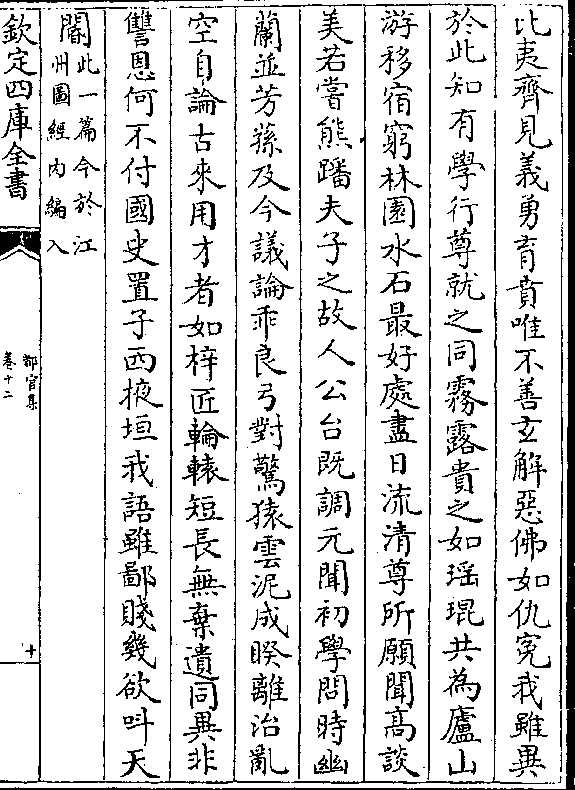 比夷齊見義勇育賁唯不善玄解惡佛如仇冤我雖異
於此知有學行尊就之同霧露貴之如瑶琨共為廬山
游移宿窮林園水石最好處盡日流清尊所願聞高談
美若嘗熊蹯夫子之故人公台既調元聞初學問時幽
蘭並芳蓀及今議論乖良弓對驚猿雲泥成睽離治亂
空自論古來用才者如梓匠輪轅短長無棄遺同異非
讐恩何不付國史置子西掖垣我語雖鄙賤幾欲呌天
閽此一篇今於江
州圖經内編入
欽定四庫全書
都官集
卷十二
十